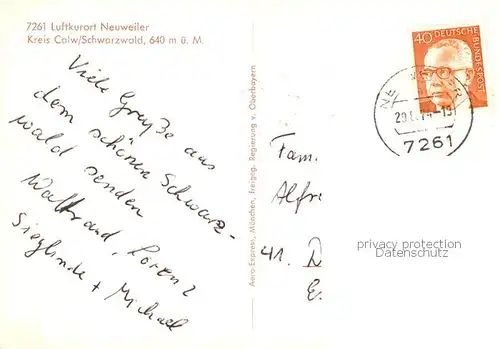 7261 Luftkurort Neuweiler
Kreis Calw/Schwarzwald, 640 m ü. M.
Viele Grüße aus
dem schönen Schwarz-
wald senden
Waltraud, Lorenz
Sieglinde + Michael
Aero-Express, München, Freigeg. Regierung v. Oberbayern
40 DEUTSCHE
BUNDESPOST
7261
Fam.
Alfre
41. D
E.
privacy protection
Datenschutz